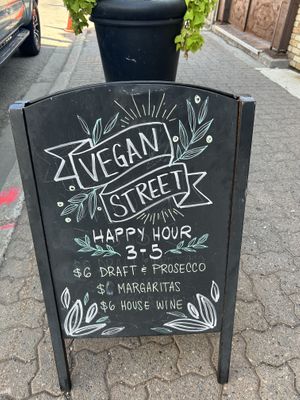 VEGAN
STREET
HAPPY HOUR
3-5
$6 DRAFT & PROSECCO
MARGARITAS
$6 HOUSE WINE